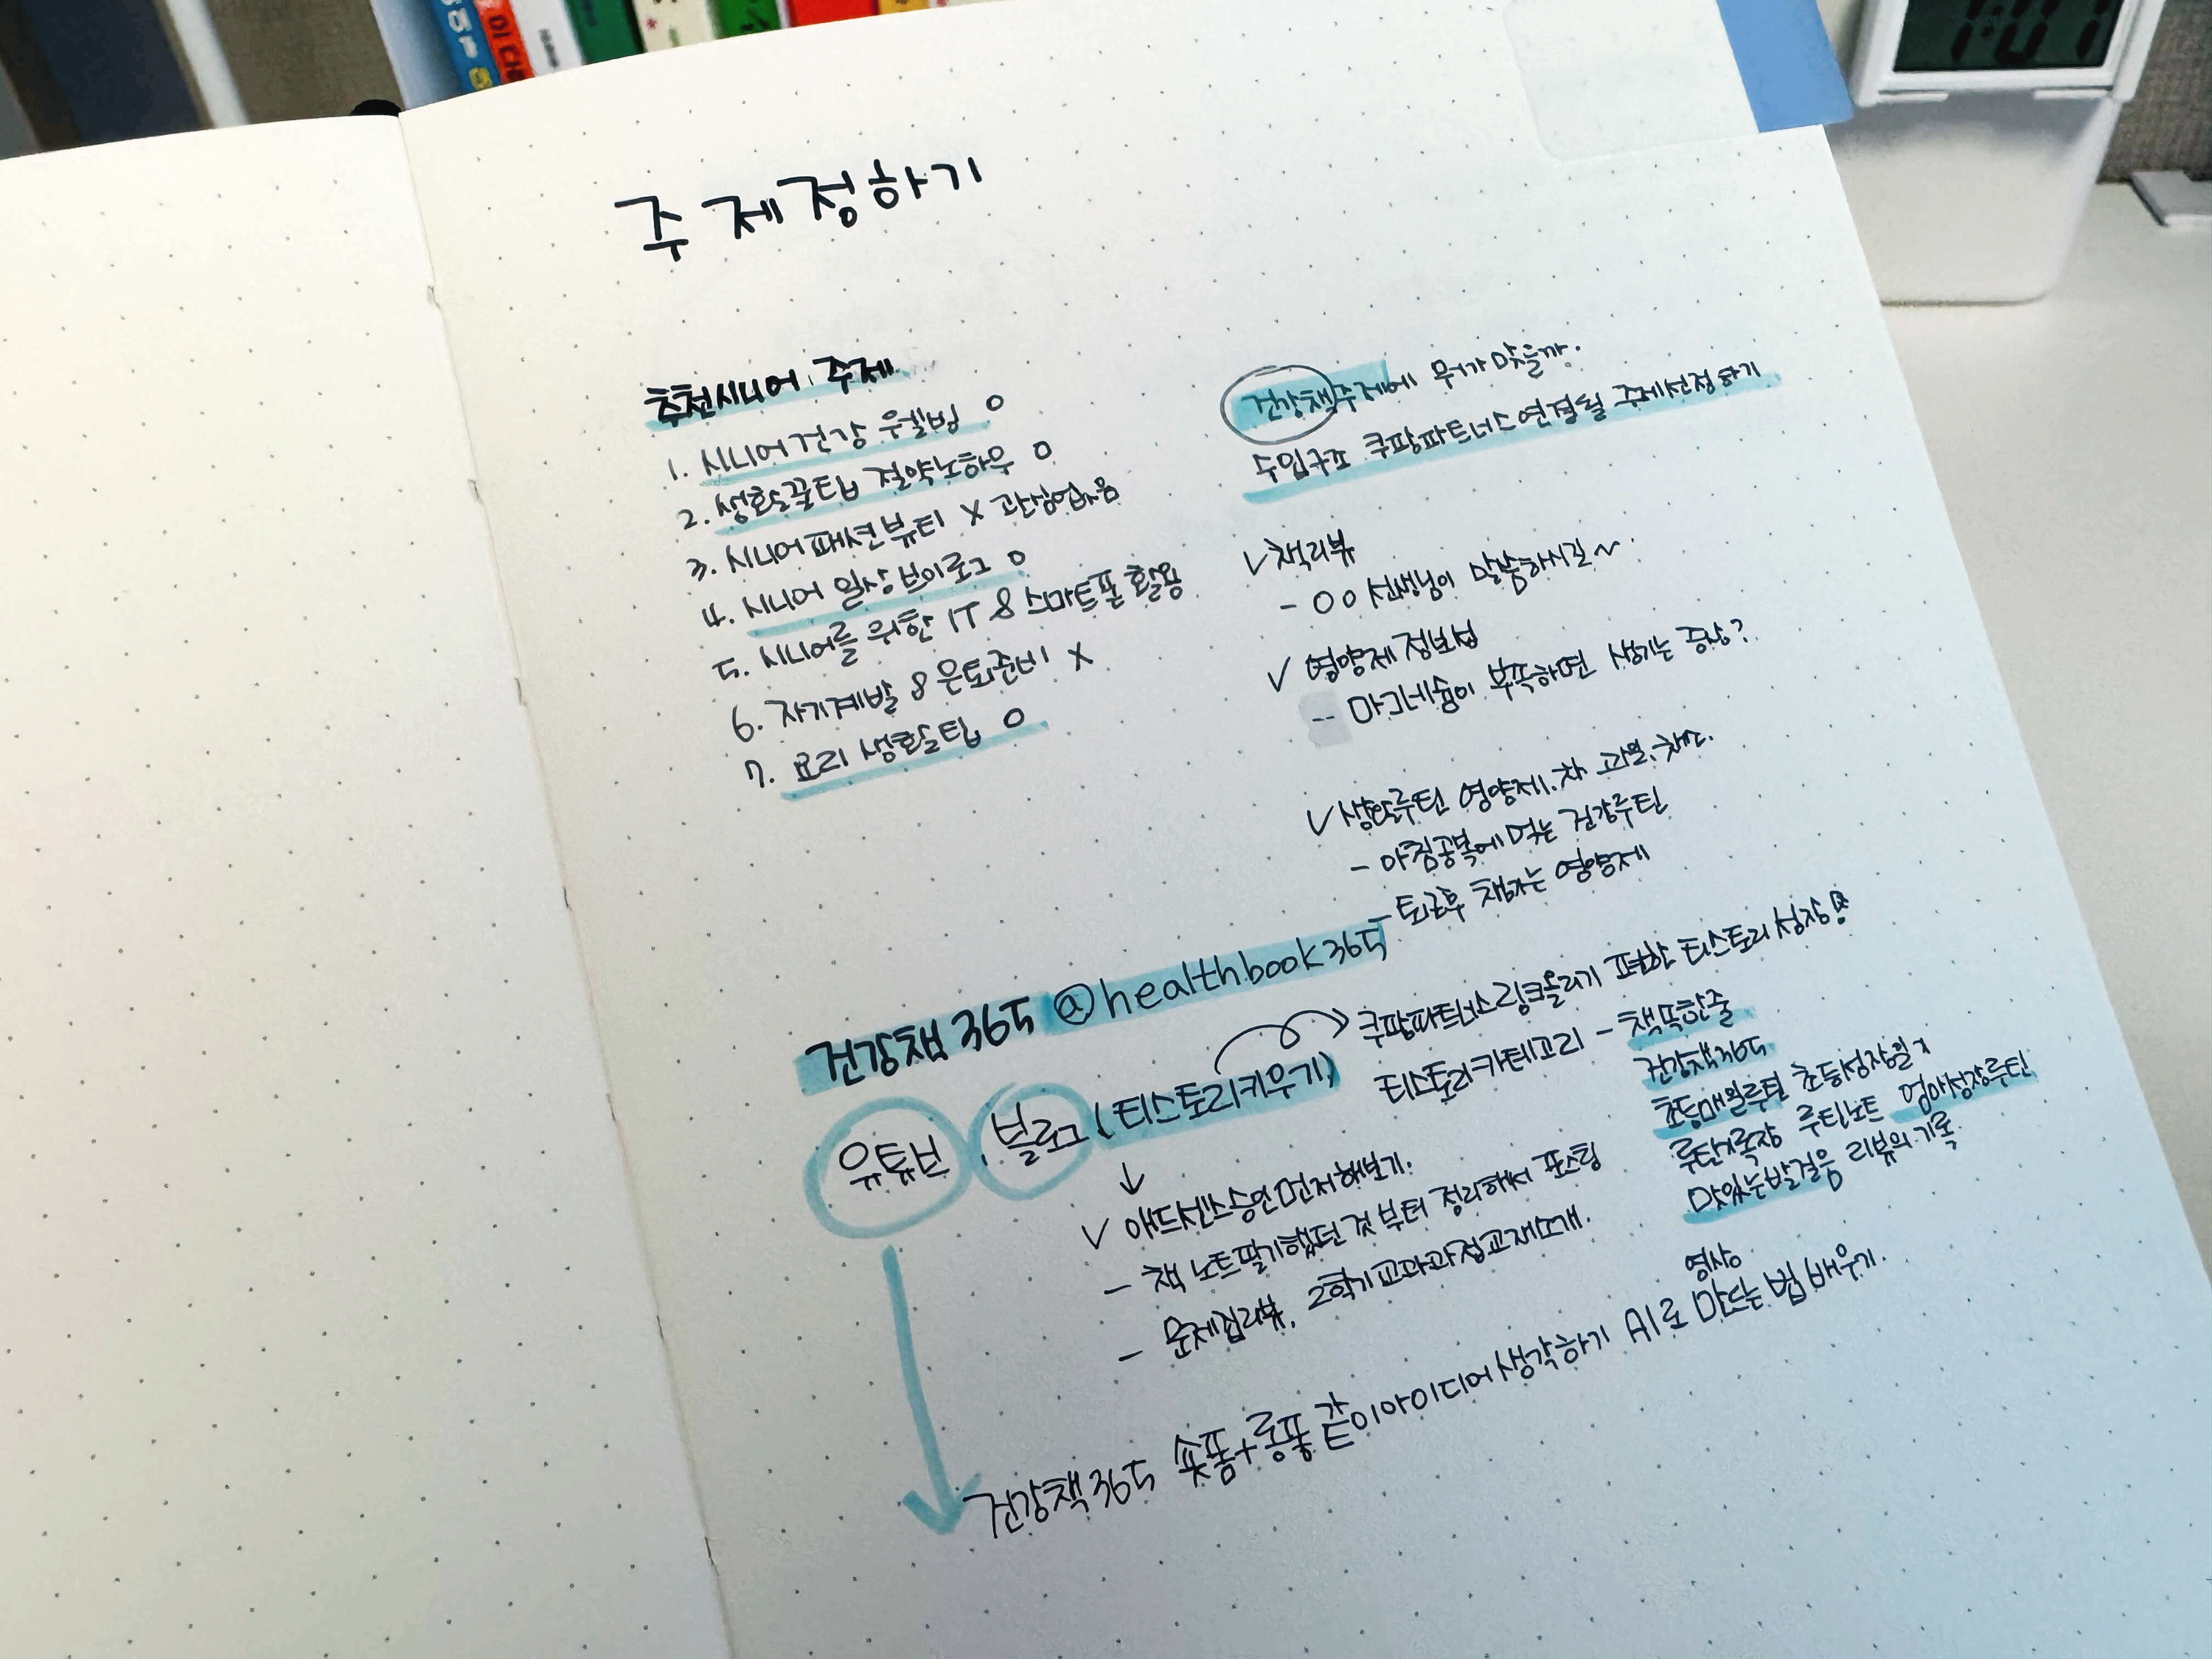 주제정하기
추천시니어 주제
1. 시니어건강 웰빙 O
2. 생활꿀팁 절약노하우 O
3. 시니어패션뷰티 X 관심없음
4. 시니어 일상 브이로그 O
5. 시니어를 위한 IT & 스마트폰 활용
6. 자기계발 & 은퇴준비 X
7. 요리 생활팁 O
건강책주제에 뭐가 맞을까.
수입구조 쿠팡파트너스연결될 주제선정하기
✓책리뷰
- OO 선생님이 말씀하시길~
✓ 영양제 정보성
-- 마그네슘이 부족하면 생기는 증상?
✓생활루틴 영양제.차 과일.채소.
- 아침공복에 먹는 건강루틴
- 퇴근후 챙기는 영양제
건강책365 @healthbook365
쿠팡파트너스링크올리기 편한 티스토리 성장
유튜브, 블로그 (티스토리키우기)
티스토리카테고리 - 책똑한줄
건강책365
초등매일루틴 초등성장일지
루틴기록장 루틴노트 엄마성장루틴
맛있는발걸음 리뷰의기록
↓
✓ 애드센스승인먼저해보기.
- 책 노트필기했던 것부터 정리해서 포스팅
- 문제집리뷰, 2학기교과과정교재소개.
영상
건강책365 숏폼+롱폼 같이아이디어생각하기 AI로 만드는 법 배우기.